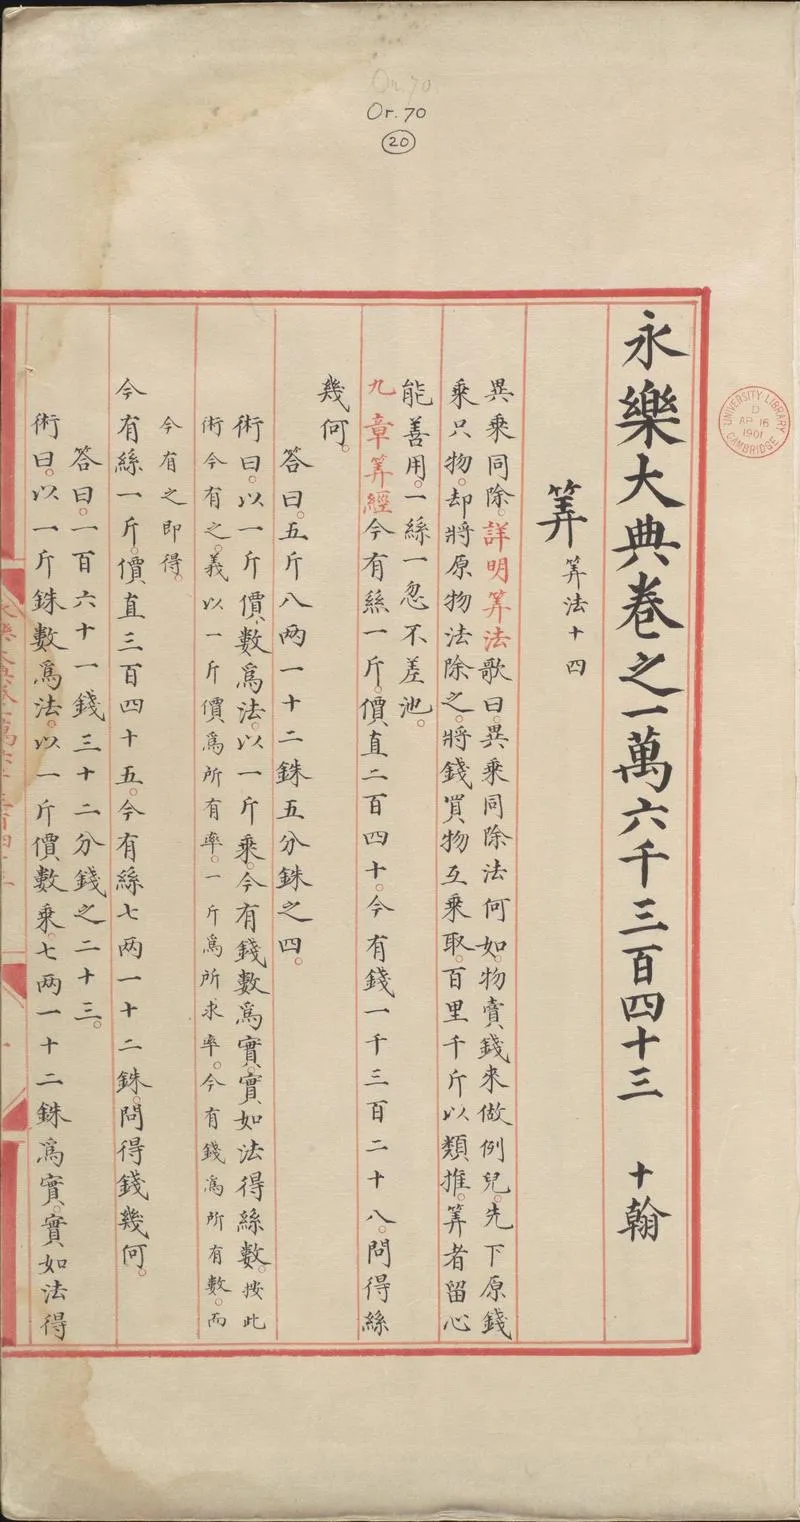 Or. 70
Or. 70
20
永樂大典卷之一萬六千三百四十三　十翰
筭　筭法十四
異乘同除。詳明筭法歌曰。異乘同除法何如。物賣錢來做例兒。先下原錢
乘只物。却將原物法除之。將錢買物互乘取。百里千斤以類推。筭者留心
能善用。一絲一忽不差池。
九章筭經今有絲一斤。價直二百四十。今有錢一千三百二十八。問得絲
幾何。
答曰。五斤八兩一十二銖五分銖之四。
術曰。以一斤價數爲法。以一斤乘。今有錢數爲實。實如法得絲數。按此
術今有之義。以一斤價爲所有率。一斤爲所求率。今有錢爲所有數。而
今有之即得。
今有絲一斤。價直三百四十五。今有絲七兩一十二銖。問得錢幾何。
答曰。一百六十一錢三十二分錢之二十三。
術曰。以一斤銖數爲法。以一斤價數乘。七兩一十二銖爲實。實如法得
UNIVERSITY LIBRARY
D
AP 16
1901
CAMBRIDGE